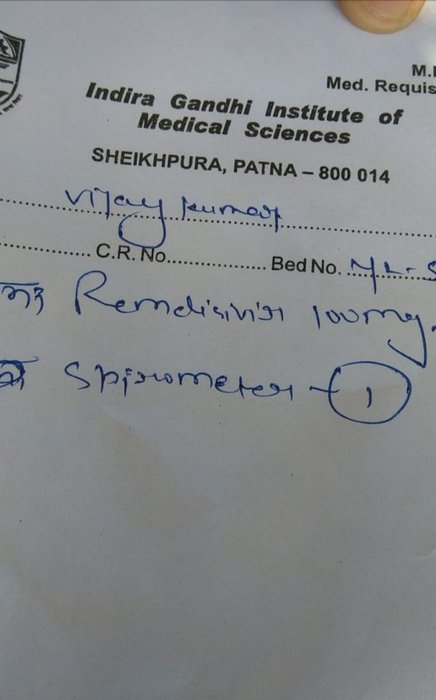 M.
Med. Requis
Indira Gandhi Institute of
Medical Sciences
SHEIKHPURA, PATNA – 800 014
Vijay Kumar
C.R. No. Bed No.
Remdisivir 100mg.
Spirometer – 1